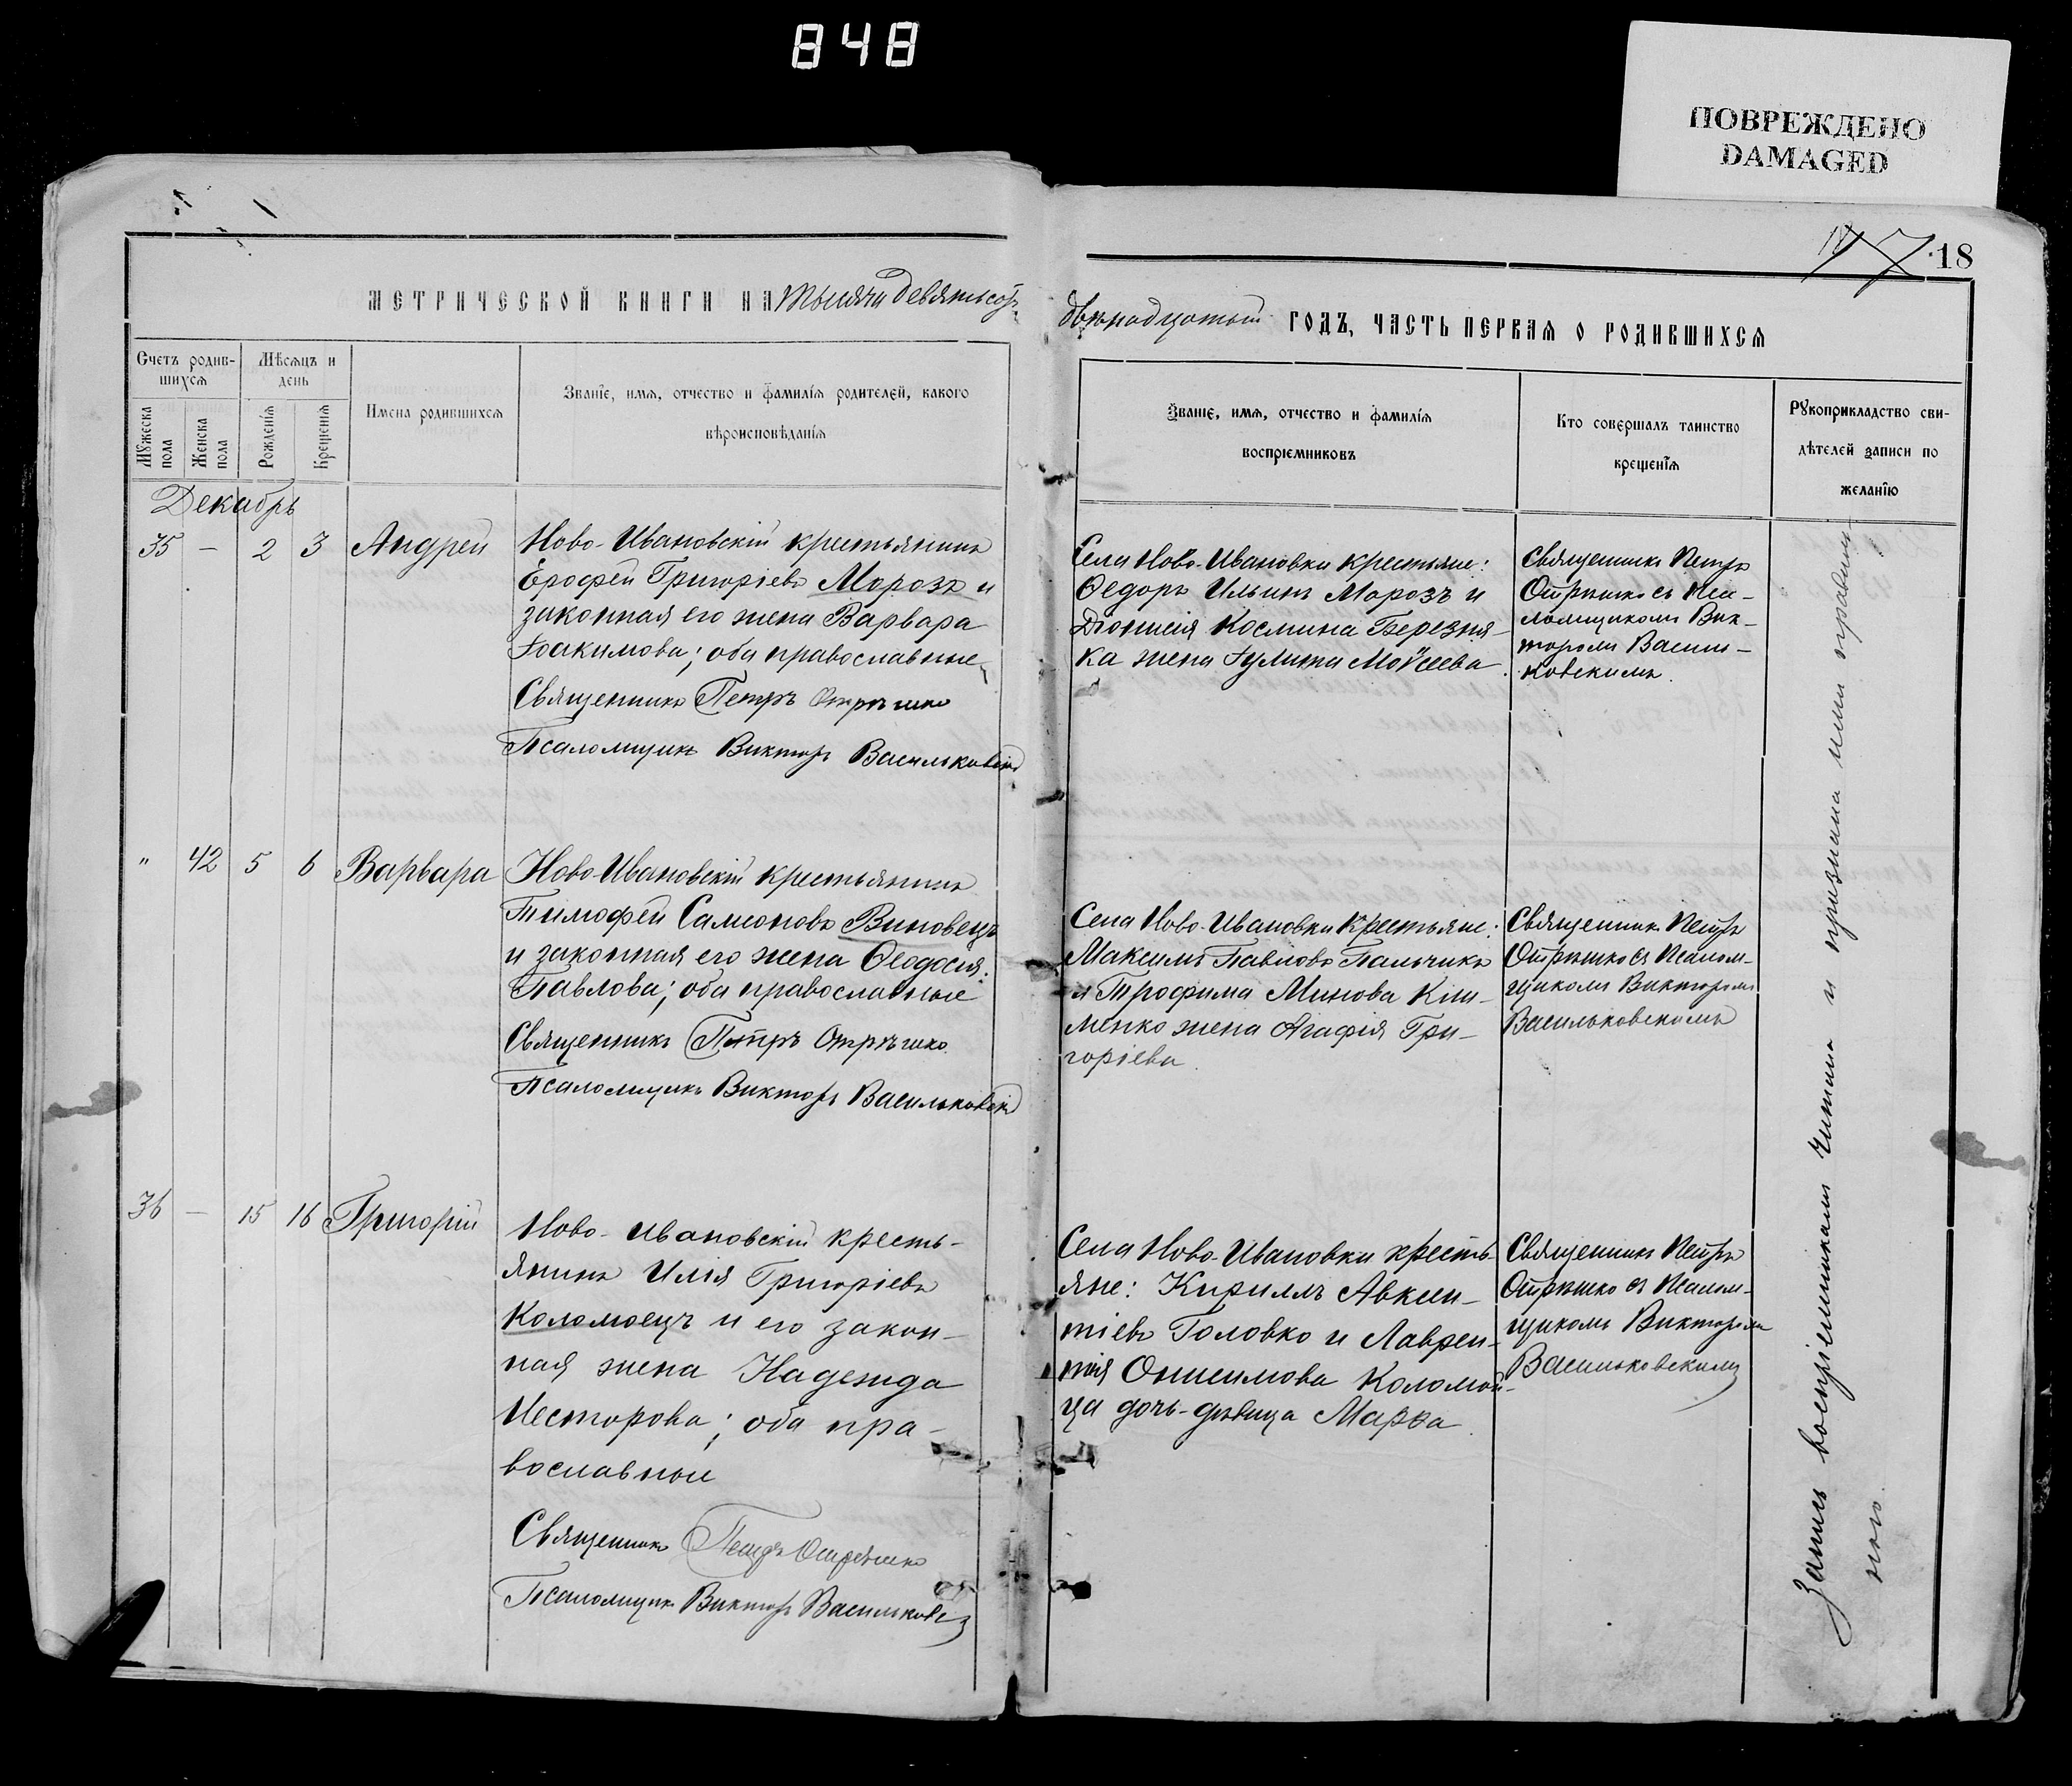 848
ПОВРЕЖДЕНО
DAMAGED
18
МЕТРИЧЕСКОЙ КНИГИ НА тысяча девятьсотъ
двѣнадцатый ГОДЪ, ЧАСТЬ ПЕРВАЯ О РОДИВШИХСЯ
Счетъ родив-
шихся
Мѣсяцъ и
день
Мужеска пола
Женска пола
Рожденія
Крещенія
Имена родившихся
Званіе, имя, отчество и фамилія родителей, какого
вѣроисповѣданія
Званіе, имя, отчество и фамилія
воспріемниковъ
Кто совершалъ таинство
крещенія
Рукоприкладство сви-
дѣтелей записи по
желанію
Декабрь
35 — 2 3 Андрей
Ново-Ивановскій крестьянинъ
Ерофей Григоріевъ Морозъ и
законная его жена Варвара
Іоакимова; оба православные
Священникъ Петръ Отрѣшко
Псаломщикъ Викторъ Васильковскій
Села Ново-Ивановки крестьяне:
Ѳедоръ Ильинъ Морозъ и
Діонисія Космина Березня-
ка жена Іулита Моѵсеева
Священникъ Петръ
Отрѣшко съ Пса-
ломщикомъ Вик-
торомъ Василь-
ковскимъ.
" 42 5 6 Варвара
Ново-Ивановскій крестьянинъ
Тимофей Самсоновъ Виновецъ
и законная его жена Ѳеодосія
Павлова; оба православные
Священникъ Петръ Отрѣшко
Псаломщикъ Викторъ Васильковскій
Села Ново-Ивановки крестьяне:
Максимъ Павловъ Пальчикъ
и Трофима Минова Кли-
менко жена Агафія Гри-
горіева.
Священникъ Петръ
Отрѣшко съ Псалом-
щикомъ Викторомъ
Васильковскимъ
36 — 15 16 Григорій
Ново-Ивановскій кресть-
янинъ Илія Григоріевъ
Коломоецъ и его закон-
ная жена Надежда
Несторова; оба пра-
вославные
Священникъ Петръ Отрѣшко
Псаломщикъ Викторъ Васильковс
Села Ново-Ивановки кресть
яне: Кириллъ Авксен-
тіевъ Головко и Лаврен-
тія Онисимова Коломой-
ца дочь-дѣвица Марѳа.
Священникъ Петръ
Отрѣшко съ Псалом-
щикомъ Викторомъ
Васильковскимъ
Запись воспріемникамъ читана и признана ими правиль-
ною.